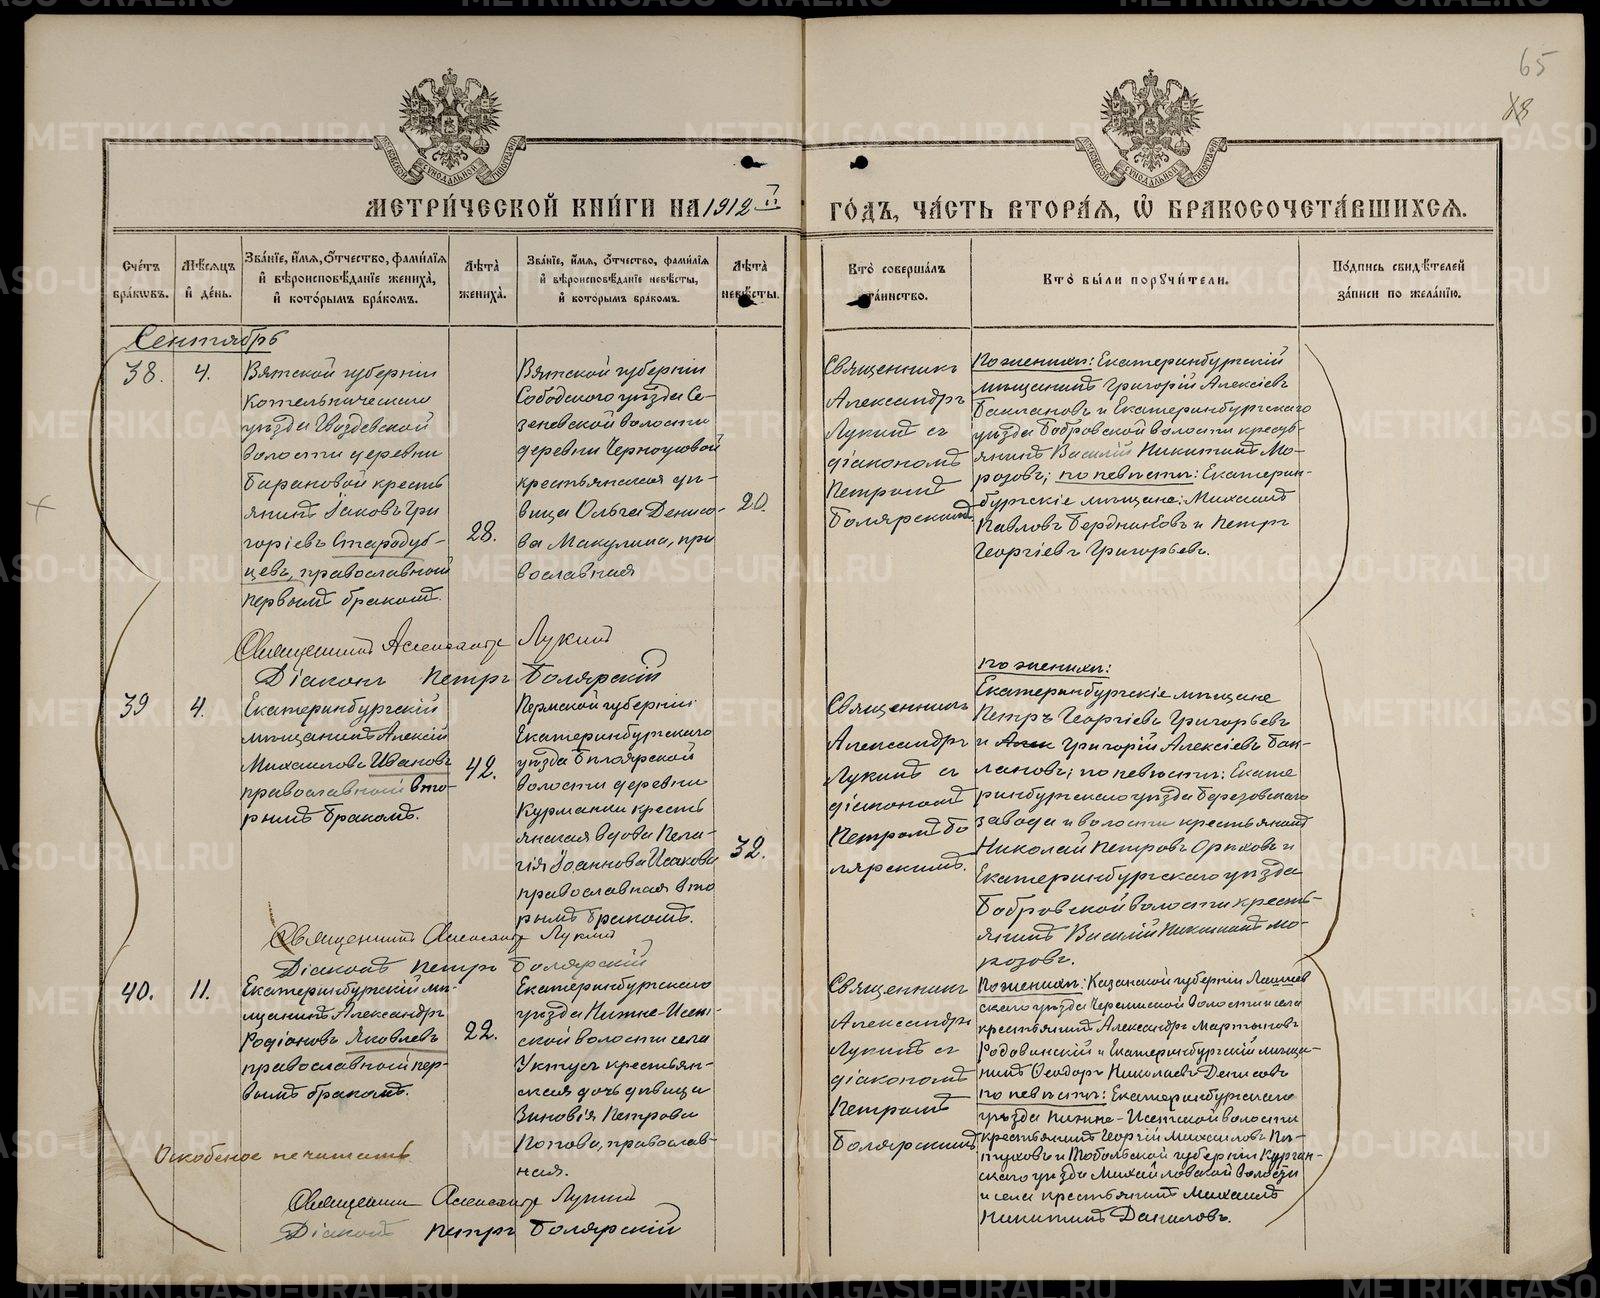 65
МЕТРИ́ЧЕСКОЙ КНИ́ГИ НА 1912 ГО́ДЪ, ЧА́СТЬ ВТОРА́Я, Ѽ БРАКОСОЧЕТА́ВШИХСЯ.
Сче́тъ бра́кѡвъ.
Мѣ́сяцъ и҆ де́нь.
Зва́нїе, и҆́мя, ѻ҆́тчество, фами́лїя и҆ вѣроисповѣ́данїе жениха̀, и҆ кото́рымъ бра́комъ.
Лѣ́та жениха̀.
Зва́нїе, и҆́мя, ѻ҆́тчество, фами́лїя и҆ вѣроисповѣ́данїе невѣ́сты, и҆ кото́рымъ бра́комъ.
Лѣ́та невѣ́сты.
Кто̀ соверша́лъ та́инство.
Кто̀ бы́ли порꙋчи́тели.
По́дпись свидѣ́телей за́писи по жела́нїю.
Сентябрь
38.
4.
Вятской губерніи
Котельническаго
уѣзда Гвоздевской
волости деревни
Барановой кресть
янинъ Іаковъ Гри
горіевъ Стародуб-
цевъ, православный
первымъ бракомъ.
28.
Вятской губерніи
Слободского уѣзда Се-
зеневской волости
деревни Черноусовой
крестьянская дѣ-
вица Ольга Денисо-
ва Макулина, пра
вославная
20.
Священникъ
Александръ
Лукинъ съ
діакономъ
Петромъ
Болярскимъ
По женихѣ: Екатеринбургскій
мѣщанинъ Григорій Алексіевъ
Баклановъ и Екатеринбургскаго
уѣзда Бобровской волости кресть-
янинъ Василій Никитинъ Мо-
розовъ; по невѣстѣ: Екатерин-
бургскіе мѣщане: Михаилъ
Павловъ Бердниковъ и Петръ
Георгіевъ Григорьевъ.
Священникъ Александръ Лукинъ
Діаконъ Петръ Болярскій
39
4.
Екатеринбургскій
мѣщанинъ Алексій
Михаиловъ Ивановъ
православный вто-
рымъ бракомъ.
42.
Пермской губерніи
Екатеринбургскаго
уѣзда Бѣлоярской
волости деревни
Курманки кресть
янская вдова Пела-
гія Іоаннова Исакова
православная вто
рымъ бракомъ.
32.
Священникъ
Александръ
Лукинъ съ
діакономъ
Петромъ Бо
лярскимъ.
по женихѣ:
Екатеринбургскіе мѣщане
Петръ Георгіевъ Григорьевъ
и Алек Григорій Алексіевъ Бак-
лановъ; по невѣстѣ: Екате
ринбургскаго уѣзда Березовскаго
завода и волости крестьянинъ
Николай Петровъ Орѣховъ и
Екатеринбургскаго уѣзда
Бобровской волости кресть-
янинъ Василій Никитинъ Мо-
розовъ.
Священникъ Александръ Лукинъ
Діаконъ Петръ Болярскій
40.
11.
Екатеринбургскій мѣ-
щанинъ Александръ
Родіоновъ Яковлевъ
православный пер-
вымъ бракомъ.
22.
Екатеринбургскаго
уѣзда Нижне-Исет-
ской волости села
Уктусъ крестьян-
ская дочь дѣвица
Зиновія Петрова
Попова, православ-
ная.
Священникъ
Александръ
Лукинъ съ
діакономъ
Петромъ
Болярскимъ
По женихѣ: Казанской губерніи Лаишев
скаго уѣзда Черемшской волости и села
крестьянинъ Александръ Мартыновъ
Родовинскій и Екатеринбургскій мѣща-
нинъ Ѳеодоръ Николаевъ Денисовъ
по невѣстѣ: Екатеринбургскаго
уѣзда Нижне-Исетской волости
крестьянинъ Георгій Михаиловъ Пѣ-
туховъ и Тобольской губерніи Курган-
скаго уѣзда Михайловской волости
и села крестьянинъ Михаилъ
Никитинъ Даниловъ.
Священникъ Александръ Лукинъ
Діаконъ Петръ Болярскій
METRIKI.GASO-URAL.RU